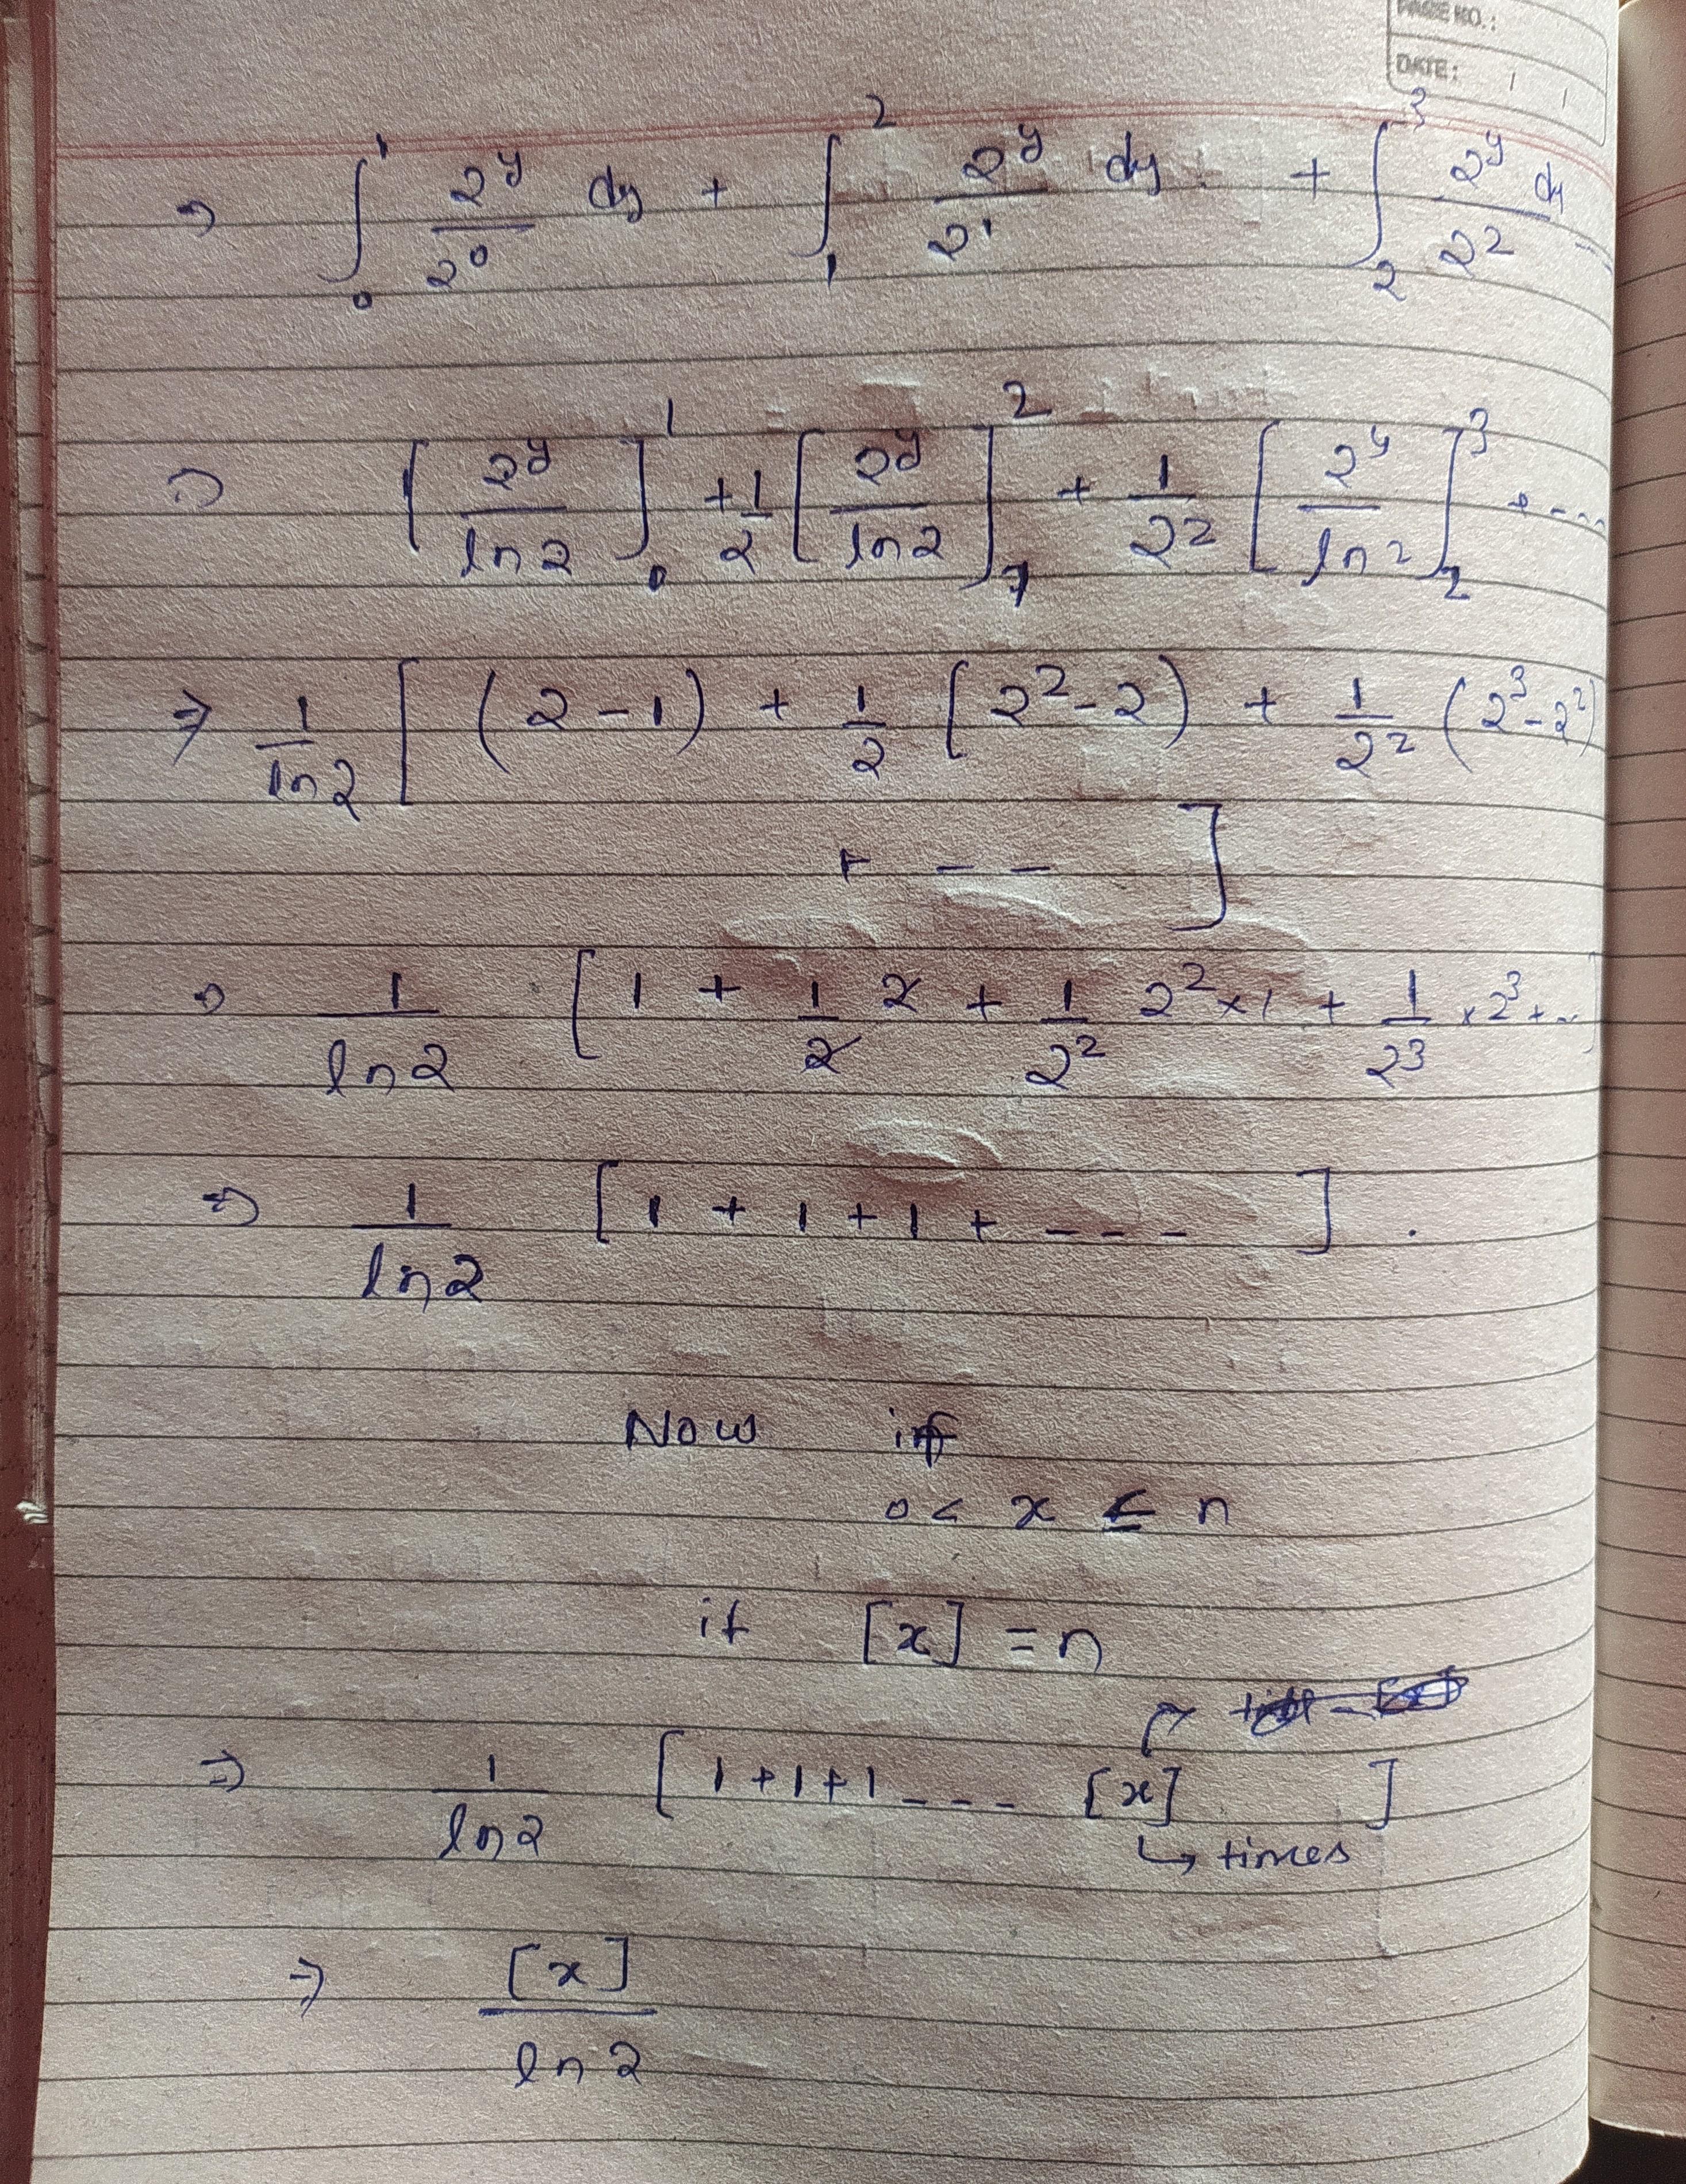 PAGE NO.:
DATE: / /
⇒ ∫₀¹ 2^y/2^0 dy + ∫₁² 2^y/2^1 dy + ∫₂³ 2^y/2^2 dy ---
⇒ [2^y/ln2]₀¹ + 1/2 [2^y/ln2]₁² + 1/2^2 [2^y/ln2]₂³ + ----
⇒ 1/ln2 [ (2-1) + 1/2 [2^2-2) + 1/2^2 (2^3-2^2)
+ -- ]
⇒ 1/ln2 [1 + 1/2 2 + 1/2^2 2^2×1 + 1/2^3 ×2^3 + --]
⇒ 1/ln2 [1 + 1 + 1 + --- ] .
Now if
0 < x ≤ n
if [x] = n
⇒ 1/ln2 [1+1+1 --- [x] ]
↳ times
⇒ [x]/ln2